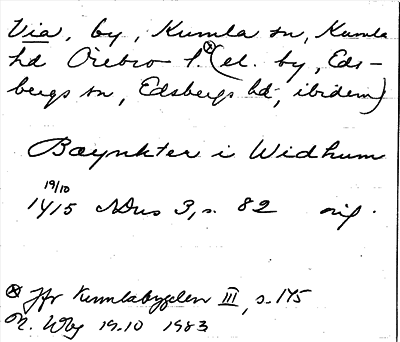 Via, by, Kumla sn, Kumla
hd Örebro l. ⊗ (el. by, Eds-
bergs sn, Edsbergs hd, ibidem)
Bæynkter i Widhum
19/10
1415 SDns 3, s. 82 orig.
⊗ Jfr Kumlabygden III, s. 175
19.10 1983